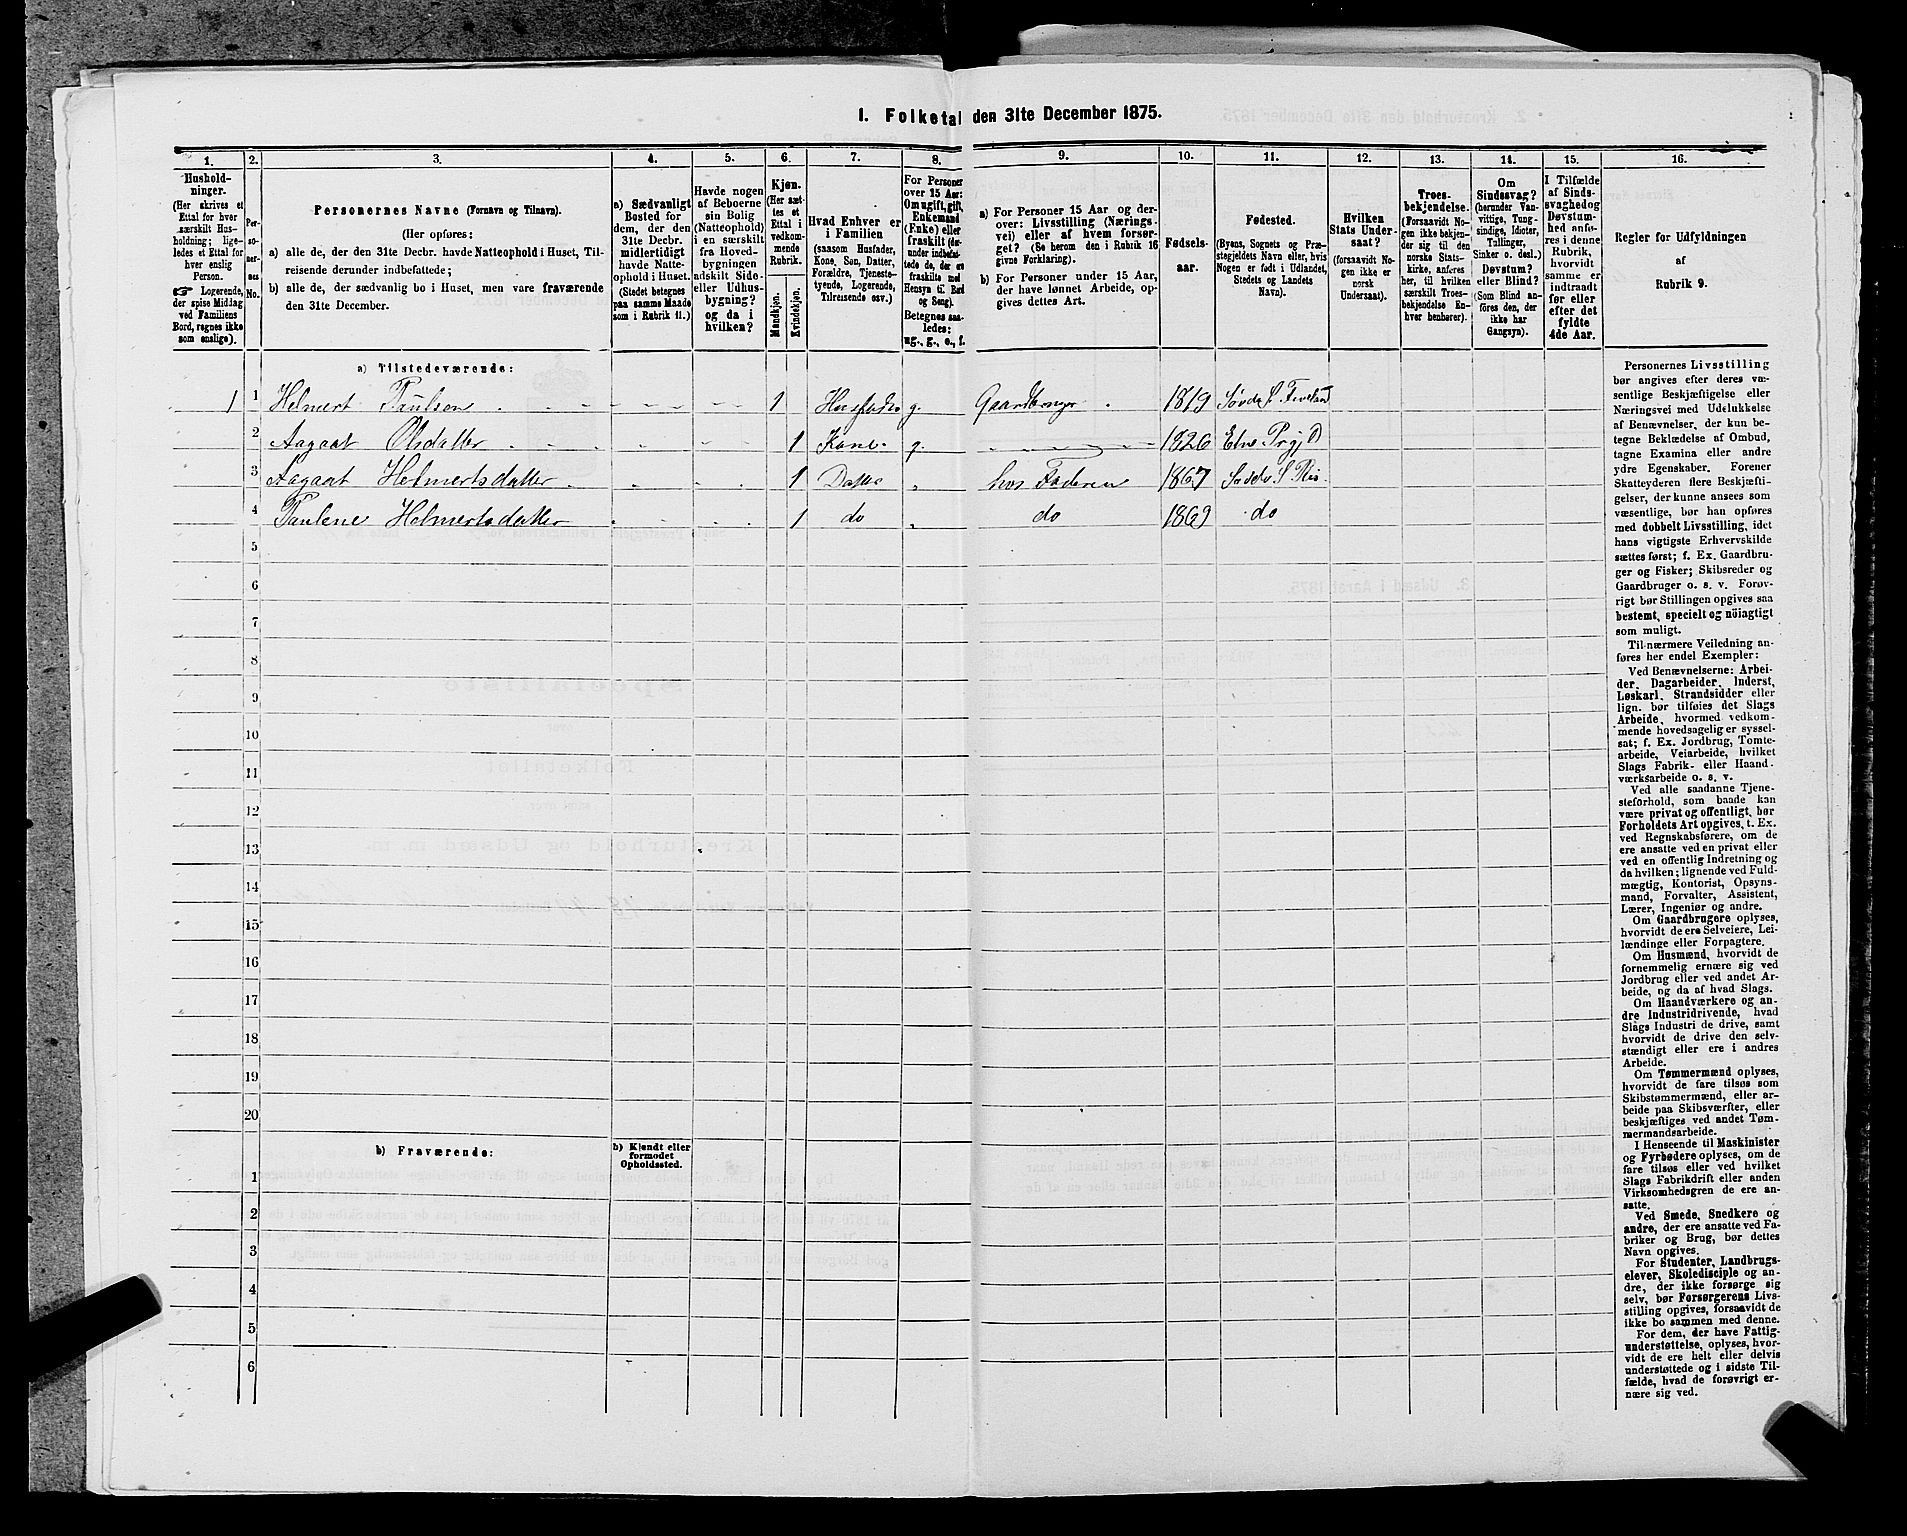 1. Folketal den 31te December 1875.
1. 2. 3. 4. 5. 6. 7. 8. 9. 10. 11. 12. 13. 14. 15. 16.
Hushold-
ninger.
(Her skrives et
Ettal for hver
særskilt Hus-
holdning; lige-
ledes et Ettal for
hver enslig
Person.
☛ Logerende,
der spise Middag
ved Familiens
Bord, regnes ikke
som enslige).
Per-
so-
ner-
nes
No.
Personernes Navne (Fornavn og Tilnavn).
(Her opføres:
a) alle de, der den 31te Decbr. havde Natteophold i Huset, Til-
reisende derunder indbefattede;
b) alle de, der sædvanlig bo i Huset, men vare fraværende
den 31te December.
a) Sædvanligt
Bosted for
dem, der den
31te Decbr.
midlertidigt
havde Natte-
ophold i Huset.
(Stedet betegnes
paa samme Maade
som i Rubrik 11.)
Havde nogen
af Beboerne
sin Bolig
(Natteophold)
i en særskilt
fra Hoved-
bygningen
adskilt Side-
eller Udhus-
bygning?
og da i
hvilken?
Kjøn.
(Her sæt-
tes et
Ettal i
vedkom-
mende
Rubrik.
Mandkjøn.
Kvindekjøn.
Hvad Enhver er
i Familien
(saasom Husfader,
Kone, Søn, Datter,
Forældre, Tjeneste-
tyende, Logerende,
Tilreisende osv.)
For Personer
over 15 Aar:
Om ugift, gift,
Enkemand
(Enke) eller
fraskilt (der-
under indbefat-
tede de, der ere
fraskilte med
Hensyn til Bord
og Seng).
Betegnes saa-
ledes:
ug., g., e., f.
a) For Personer 15 Aar og der-
over: Livsstilling (Nærings-
vei) eller af hvem forsør-
get? (Se herom den i Rubrik 16
givne Forklaring).
b) For Personer under 15 Aar,
der have lønnet Arbeide, op-
gives dettes Art.
Fødsels-
aar.
Fødested.
(Byens, Sognets og Præ-
stegjeldets Navn eller, hvis
Nogen er født i Udlandet,
Stedets og Landets
Navn).
Hvilken
Stats Under-
saat?
(forsaavidt No-
gen ikke er
norsk
Undersaat).
Troes-
bekjendelse.
(Forsaavidt No-
gen ikke bekjen-
der sig til den
norske Stats-
kirke, anføres
her, til hvilken
særskilt Troes-
bekjendelse En-
hver benhører).
Om
Sindssvag?
(herunder Van-
vittige, Tung-
sindige, Idioter,
Tullinger,
Sinker o. desl.)
Døvstum?
eller Blind?
(Som Blind an-
føres den, der
ikke har
Gangsyn).
I Tilfælde
af Sinds-
svaghed og
Døvstum-
hed anfø-
res i denne
Rubrik,
hvorvidt
samme er
indtraadt
før eller
efter det
fyldte
4de Aar.
Regler for Udfyldningen
af
Rubrik 9.
a) Tilstedeværende:
1 1 Helmert Paulsen 1 Husfader g. Gaardbruger 1819
2 Aagaat Olsdatter 1 Kone g. 1826 Etne Prgj
3 Aagaat Helmertsdatter 1 Datter " hos Faderen 1867
4 Paulene Helmertsdatter 1 do " do 1869 do
5
6
7
8
9
10
11
12
13
14
15
16
17
18
19
20
b) Fraværende:
b) Kjendt eller
formodet
Opholdssted.
1
2
3
4
5
6
Personernes Livsstilling
bør angives efter deres væ-
sentlige Beskjæftigelse eller
Næringsvei med Udelukkelse
af Benævnelser, der kun be-
tegne Beklædelse af Ombud,
tagne Examina eller andre
ydre Egenskaber. Forener
Skatteyderen flere Beskjæfti-
gelser, der kunne ansees som
væsentlige, bør han opføres
med dobbelt Livsstilling, idet
hans vigtigste Erhvervskilde
sættes først; f. Ex. Gaardbru-
ger og Fisker; Skibsreder og
Gaardbruger o. s. v. Forøv-
rigt bør Stillingen opgives saa
bestemt, specielt og nøiagtigt
som muligt.
Til nærmere Veiledning an-
føres her endel Exempler:
Ved Benævnelserne: Arbei-
der, Dagarbeider, Inderst,
Løskarl, Strandsidder eller
lign. bør tilføies det Slags
Arbeide, hvormed vedkom-
mende hovedsagelig er syssel-
sat; f. Ex. Jordbrug, Tomte-
arbeide, Veiarbeide, hvilket
Slags Fabrik- eller Haand-
værksarbeide o. s. v.
Ved alle saadanne Tjene-
steforhold, som baade kan
være privat og offentligt, bør
Forholdets Art opgives, t. Ex.
ved Regnskabsførere, om de
ere ansatte ved en privat eller
ved en offentlig Indretning og
da hvilken; lignende ved Fuld-
mægtig, Kontorist, Opsyns-
mand, Forvalter, Assistent,
Lærer, Ingeniør og andre.
Om Gaardbrugere oplyses,
hvorvidt de ere Selveiere, Lei-
lændinge eller Forpagtere.
Om Husmænd, hvorvidt de
fornemmelig ernære sig ved
Jordbrug eller ved andet Ar-
beide, og da af hvad Slags.
Om Haandværkere og an-
dre Industridrivende, hvad
Slags Industri de drive, samt
hvorvidt de drive den selv-
stændigt eller ere i andres
Arbeide.
Om Tømmermænd oplyses,
hvorvidt de fare tilsøs som
Skibstømmermænd, eller ar-
beide paa Skibsværfter, eller
beskjæftiges ved andet Tøm-
mermandsarbeide.
I Henseende til Maskinister
og Fyrbødere oplyses, om de
fare tilsøs eller ved hvilket
Slags Fabrikdrift eller anden
Virksomhedsgren de ere an-
satte.
Ved Smede, Snedkere og
andre, der ere ansatte ved Fa-
briker og Brug, bør dettes
Navn opgives.
For Studenter, Landbrugs-
elever, Skoledisciple og an-
dre, der ikke forsørge sig
selv, bør Forsørgerens Livs-
stilling opgives, forsaavidt de
ikke bo sammen med denne.
For dem, der have Fattig-
understøttelse, oplyses, hvor-
vidt de ere helt eller delvis
understøttede og i sidste Til-
fælde, hvad de forøvrigt er-
nære sig ved.